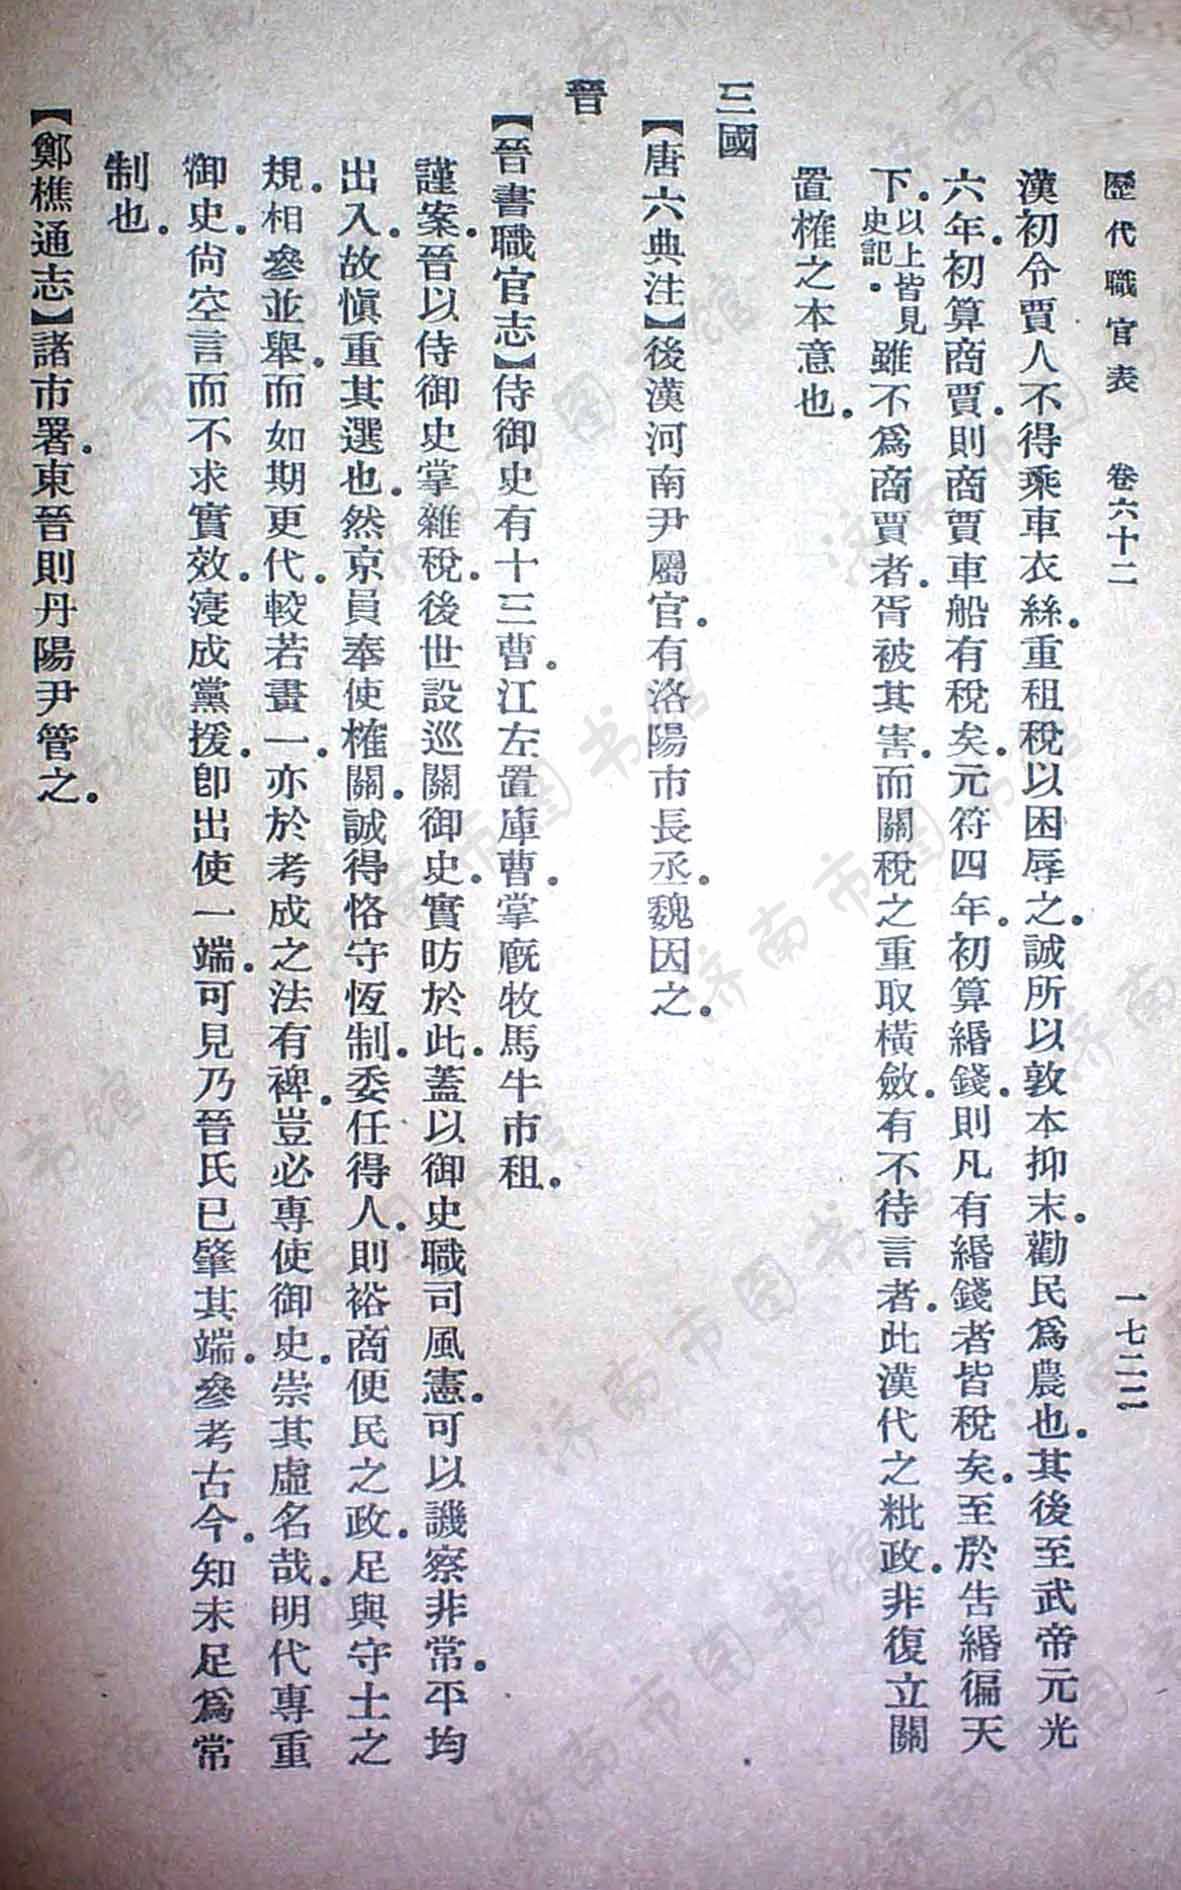 歷代職官表 卷六十二 一七二二
漢初令賈人不得乘車衣絲。重租稅以困辱之。誠所以敦本抑末。勸民爲農也。其後至武帝元光
六年。初算商賈。則商賈車船有稅矣。元符四年。初算緡錢。則凡有緡錢者皆稅矣。至於告緡徧天
下。以上皆見史記。雖不爲商賈者。胥被其害。而關稅之重取橫斂。有不待言者。此漢代之粃政。非復立關
置榷之本意也。
三國
【唐六典注】後漢河南尹屬官。有洛陽市長丞。魏因之。
晉
【晉書職官志】侍御史有十三曹。江左置庫曹。掌廐牧馬牛市租。
謹案。晉以侍御史掌雜稅。後世設巡關御史。實昉於此。蓋以御史職司風憲。可以譏察非常。平均
出入。故愼重其選也。然京員奉使榷關。誠得恪守恆制。委任得人。則裕商便民之政。足與守土之
規。相參並舉。而如期更代。較若畫一。亦於考成之法有裨。豈必專使御史。崇其虛名哉。明代專重
御史。尙空言而不求實效。寖成黨援。卽出使一端。可見乃晉氏已肇其端。參考古今。知未足爲常
制也。
【鄭樵通志】諸市署。東晉則丹陽尹管之。
济南市图书馆